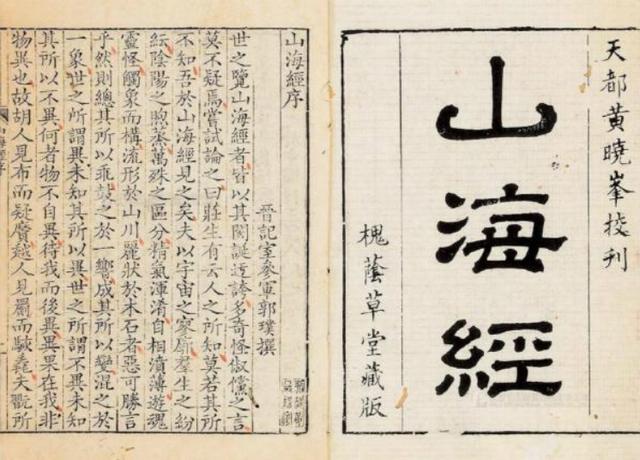 天都黃曉峯校刊
山海經
槐蔭草堂藏版
山海經序
晉記室參軍郭璞撰
世之覽山海經者皆以其閎誕迂誇多奇怪俶儻之言
莫不疑焉嘗試論之曰莊生有云人之所知莫若其所
不知吾於山海經見之矣夫以宇宙之寥廓羣生之紛
紜陰陽之煦蒸萬殊之區分精氣渾淆自相濆薄遊魂
靈怪觸象而構流形於山川麗狀於木石者惡可勝言
乎然則總其所以乖鼓之於一響成其所以變混之於
一象世之所謂異未知其所以異世之所謂不異未知
其所以不異何者物不自異待我而後異異果在我非
物異也故胡人見布而疑黂越人見罽而駭毳夫翫所
山海經序